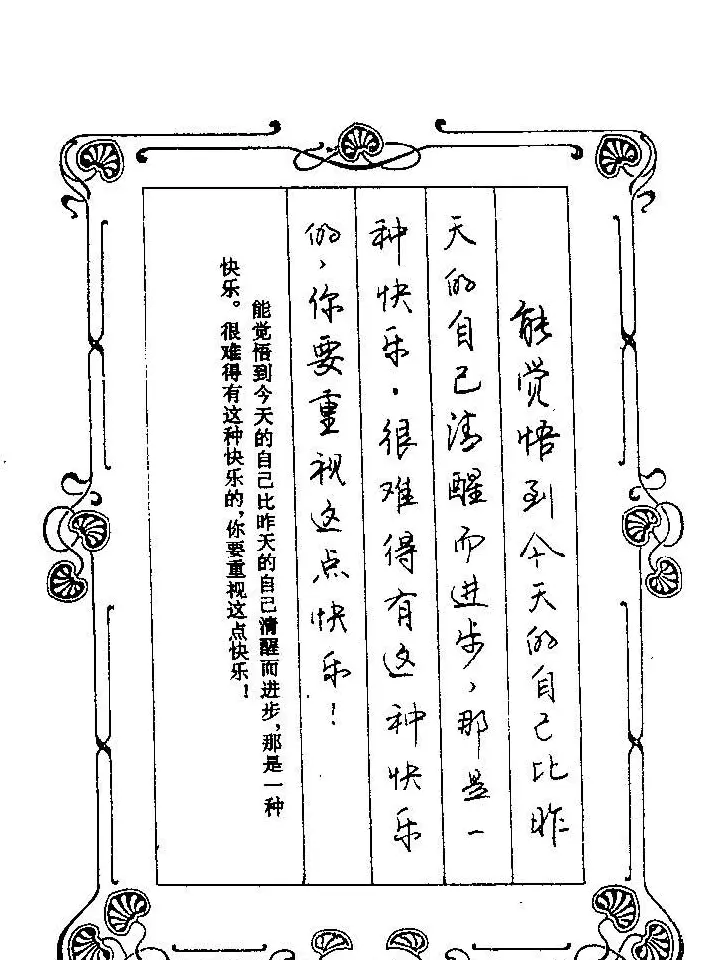 能觉悟到今天的自己比昨
天的自己清醒而进步，那是一
种快乐。很难得有这种快乐
的，你要重视这点快乐！
能觉悟到今天的自己比昨天的自己清醒而进步，那是一种
快乐。很难得有这种快乐的，你要重视这点快乐！